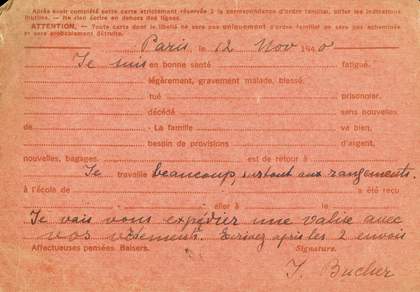 Après avoir complété cette carte strictement réservée à la correspondance d'ordre familial, biffer les indications
inutiles. — Ne rien écrire en dehors des lignes.
ATTENTION. — Toute carte dont le libellé ne sera pas uniquement d'ordre familial ne sera pas acheminée
et sera probablement détruite.
Paris, le 12 Nov 1940
Je suis en bonne santé fatigué.
légèrement, gravement malade, blessé.
tué prisonnier.
décédé sans nouvelles.
de - La famille va bien.
besoin de provisions d'argent.
nouvelles, bagages. est de retour à
Je travaille beaucoup, surtout aux rangements.
à l'école de a été reçu
aller à le
Je vais vous expédier une valise avec
vos vêtements. Ecrivez après les 2 envois
Affectueuses pensées. Baisers. Signature.
J. Bucher